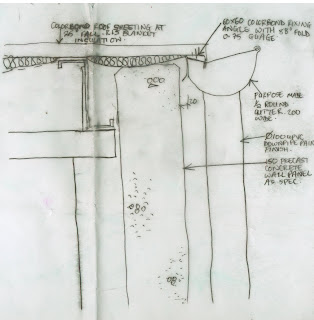 COLORBOND ROOF SHEETING AT
FALL. R1.5 BLANKET
INSULATION.
COLORBOND FIXING
ANGLE WITH 55° FOLD
0.75 GUAGE.
200
20
PURPOSE MADE
½ ROUND
GUTTER 200
WIDE.
Ø100 UPVC
DOWNPIPE PAINT
FINISH.
180 PRECAST
CONCRETE
WALL PANEL
AS SPEC.